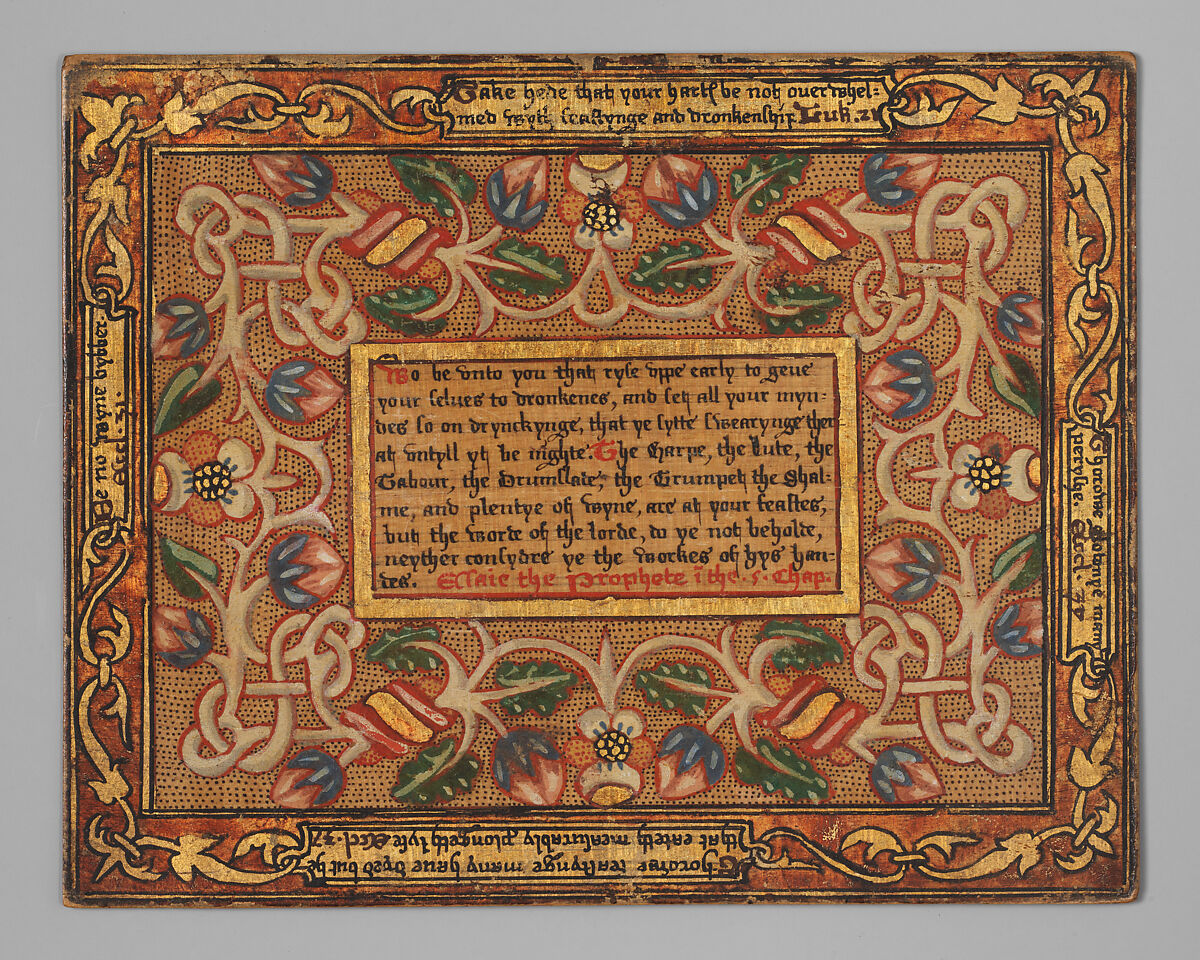 Take hede that your harts be not overwhel=
med wyth feastynge and dronkenship. Luk. 21
Wo be vnto you that ryse vppe early to geue
your selues to dronkenes, and set all your myn-
des so on drynckynge, that ye sytte swearynge ther-
at vntyll yt be nighte. The Harpe, the Lute, the
Tabour, the Drumslade, the Trumpet the Shal-
me, and plentye of wyne, are at your feastes,
but the worde of the lorde, do ye not beholde,
neyther consydre ye the workes of hys han-
des. Esaie the Prophete ī the .5. Chap.
Be no wyne bybber
Eccl. 31.
Thorowe
peryshe. Eccl. 37
Thorowe feastynge many haue dyed but he
that eateth measurably prolongeth lyfe Eccl. 37